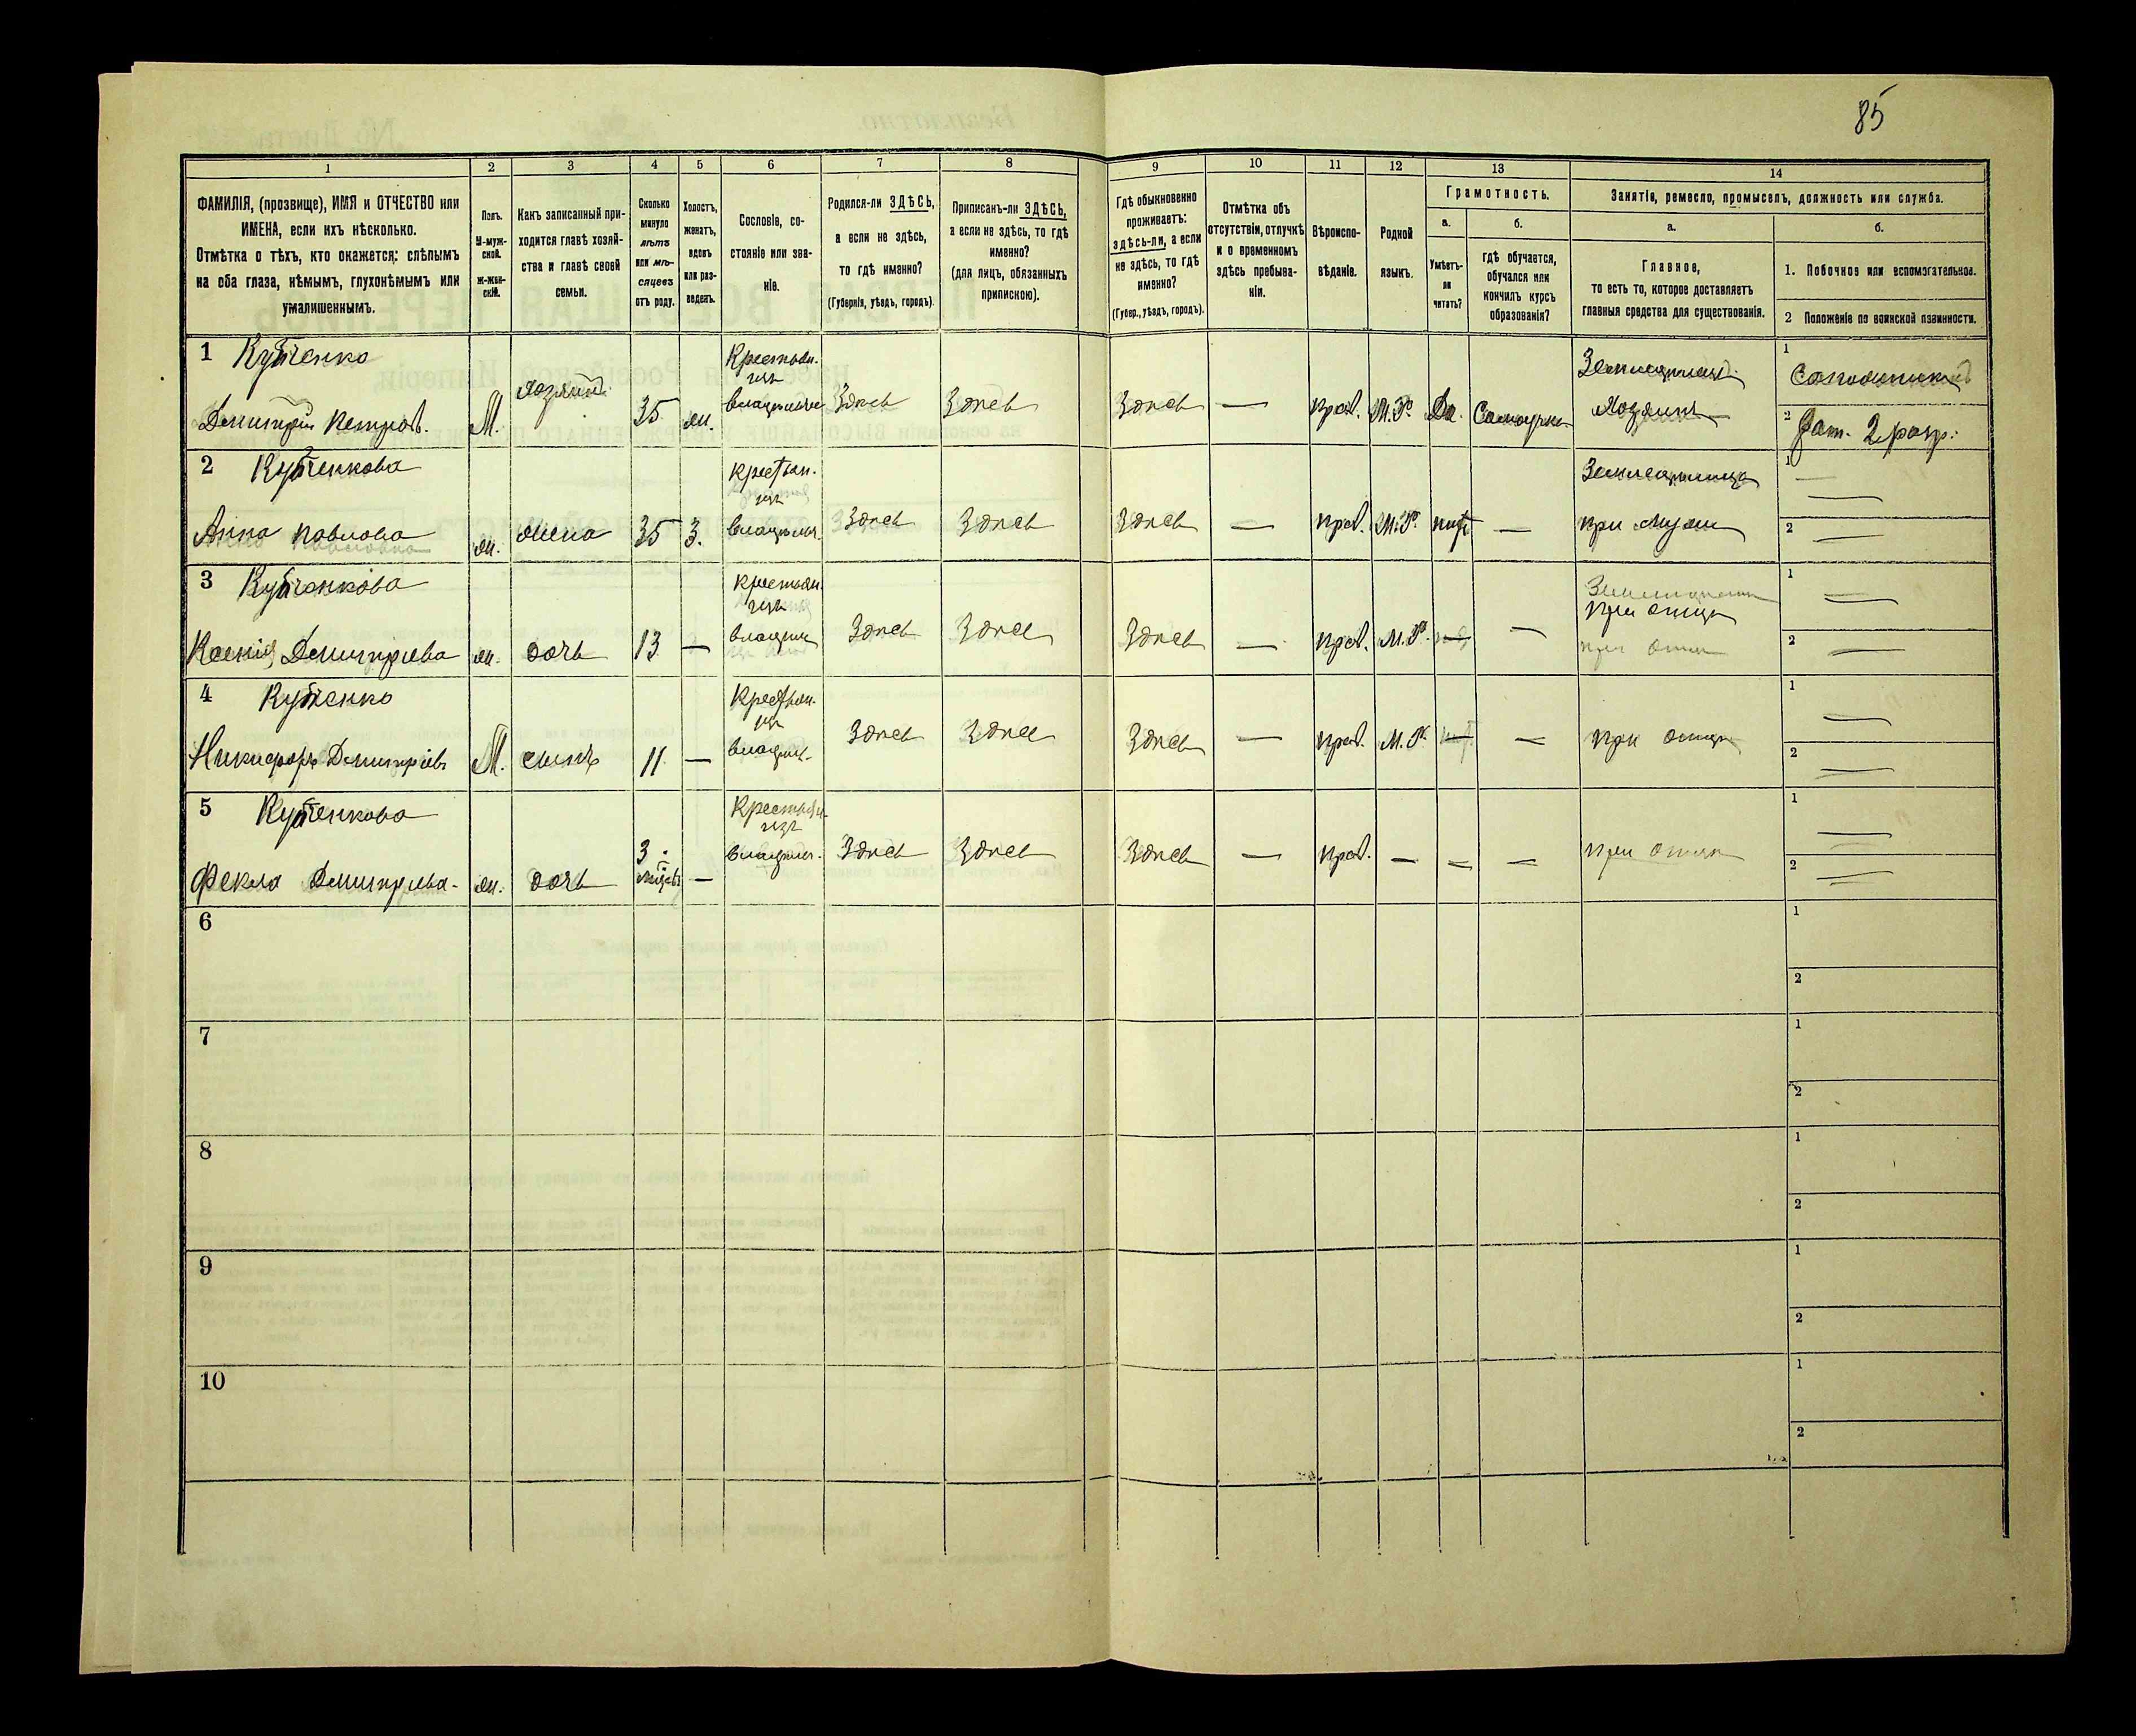 85
1
2
3
4
5
6
7
8
9
10
11
12
13
14
ФАМИЛІЯ, (прозвище), ИМЯ и ОТЧЕСТВО или
ИМЕНА, если ихъ нѣсколько.
Отмѣтка о тѣхъ, кто окажется: слѣпымъ
на оба глаза, нѣмымъ, глухонѣмымъ или
умалишеннымъ.
Полъ.
М-муж-
ской.
Ж-жен-
скій.
Какъ записанный при-
ходится главѣ хозяй-
ства и главѣ своей
семьи.
Сколько
минуло
лѣтъ
или мѣ-
сяцевъ
отъ роду.
Холостъ,
женатъ,
вдовъ
или раз-
веденъ.
Сословіе, со-
стояніе или зва-
ніе.
Родился-ли ЗДѢСЬ,
а если не здѣсь,
то гдѣ именно?
(Губернія, уѣздъ, городъ).
Приписанъ-ли ЗДѢСЬ,
а если не здѣсь, то гдѣ
именно?
(для лицъ, обязанныхъ
припискою).
Гдѣ обыкновенно
проживаетъ:
здѣсь-ли, а если
не здѣсь, то гдѣ
именно?
(Губер., уѣздъ, городъ).
Отмѣтка объ
отсутствіи, отлучкѣ
и о временномъ
здѣсь пребыва-
ніи.
Вѣроиспо-
вѣданіе.
Родной
языкъ.
Грамотность.
а.
Умѣетъ-
ли
читать?
б.
гдѣ обучается,
обучался или
кончилъ курсъ
образованія?
Занятіе, ремесло, промыселъ, должность или служба.
а.
Главное,
то есть то, которое доставляетъ
главныя средства для существованія.
б.
1. Побочное или вспомогательное.
2 Положеніе по воинской повинности.
1 Кубченко
Дмитрій Петровъ.
М.
хозяинъ
35
ж.
Крестьян.
изъ
владѣльч
Здѣсь
Здѣсь
Здѣсь
—
прав.
М.Р.
Да.
Самоучка
Земледѣлецъ.
Хозяинъ
1
Сапожникъ
2
Рат. 2 разр.
2 Кубченкова
Анна Павлова
ж.
жена
35
З.
Крестьян.
изъ
владѣльч.
Здѣсь
Здѣсь
Здѣсь
—
прав.
М.Р.
нѣтъ
—
Земледѣлица
при мужи
1 —
2 —
3 Кубченкова
Ксенія Дмитріева
ж.
дочь
13
—
Крестьян.
изъ
владѣльч
Здѣсь
Здѣсь
Здѣсь
—
прав.
М.Р.
—
—
при отцѣ
при отцѣ
1 —
2 —
4 Кубченко
Никифоръ Дмитріевъ
М.
сынъ
11
—
Крестьян.
изъ
владѣльч.
Здѣсь
Здѣсь
Здѣсь
—
прав.
М.Р.
—
—
при отцѣ
1 —
2 —
5 Кубченкова
Фекла Дмитріева.
ж.
дочь
3
мѣсяцъ
—
Крестьян.
изъ
владѣльч.
Здѣсь
Здѣсь
Здѣсь
—
прав.
—
—
—
при отцѣ
1 —
2 —
6
1
2
7
1
2
8
1
2
9
1
2
10
1
2